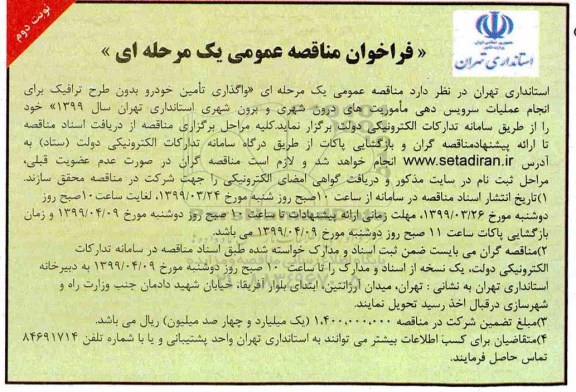 نوبت دوم
جمهوری اسلامی ایران
وزارت کشور
استانداری تهران
« فراخوان مناقصه عمومی یک مرحله ای »
استانداری تهران در نظر دارد مناقصه عمومی یک مرحله ای «واگذاری تأمین خودرو بدون طرح ترافیک برای
انجام عملیات سرویس دهی مأموریت های درون شهری و برون شهری استانداری تهران سال ۱۳۹۹» خود
را از طریق سامانه تدارکات الکترونیکی دولت برگزار نماید.کلیه مراحل برگزاری مناقصه از دریافت اسناد مناقصه
تا ارائه پیشنهادمناقصه گران و بازگشایی پاکات از طریق درگاه سامانه تدارکات الکترونیکی دولت (ستاد) به
آدرس www.setadiran.ir انجام خواهد شد و لازم است مناقصه گران در صورت عدم عضویت قبلی،
مراحل ثبت نام در سایت مذکور و دریافت گواهی امضای الکترونیکی را جهت شرکت در مناقصه محقق سازند.
۱)تاریخ انتشار اسناد مناقصه در سامانه از ساعت ۱۰صبح روز شنبه مورخ ۱۳۹۹/۰۳/۲۴، لغایت ساعت۱۰صبح روز
دوشنبه مورخ ۱۳۹۹/۰۳/۲۶، مهلت زمانی ارائه پیشنهادات تا ساعت ۱۰ صبح روز دوشنبه مورخ ۱۳۹۹/۰۴/۰۹ و زمان
بازگشایی پاکات ساعت ۱۱ صبح روز دوشنبه مورخ ۱۳۹۹/۰۴/۰۹ می باشد.
۲)مناقصه گران می بایست ضمن ثبت اسناد و مدارک خواسته شده طبق اسناد مناقصه در سامانه تدارکات
الکترونیکی دولت، یک نسخه از اسناد و مدارک را تا ساعت ۱۰ صبح روز دوشنبه مورخ ۱۳۹۹/۰۴/۰۹ به دبیرخانه
استانداری تهران به نشانی : تهران، میدان آرژانتین، ابتدای بلوار آفریقا، خیابان شهید دادمان جنب وزارت راه و
شهرسازی درقبال اخذ رسید تحویل نمایند.
۳)مبلغ تضمین شرکت در مناقصه ۱,۴۰۰,۰۰۰,۰۰۰ (یک میلیارد و چهار صد میلیون) ریال می باشد.
۴)متقاضیان برای کسب اطلاعات بیشتر می توانند به استانداری تهران واحد پشتیبانی و یا با شماره تلفن ۸۴۶۹۱۷۱۴
تماس حاصل فرمایند.